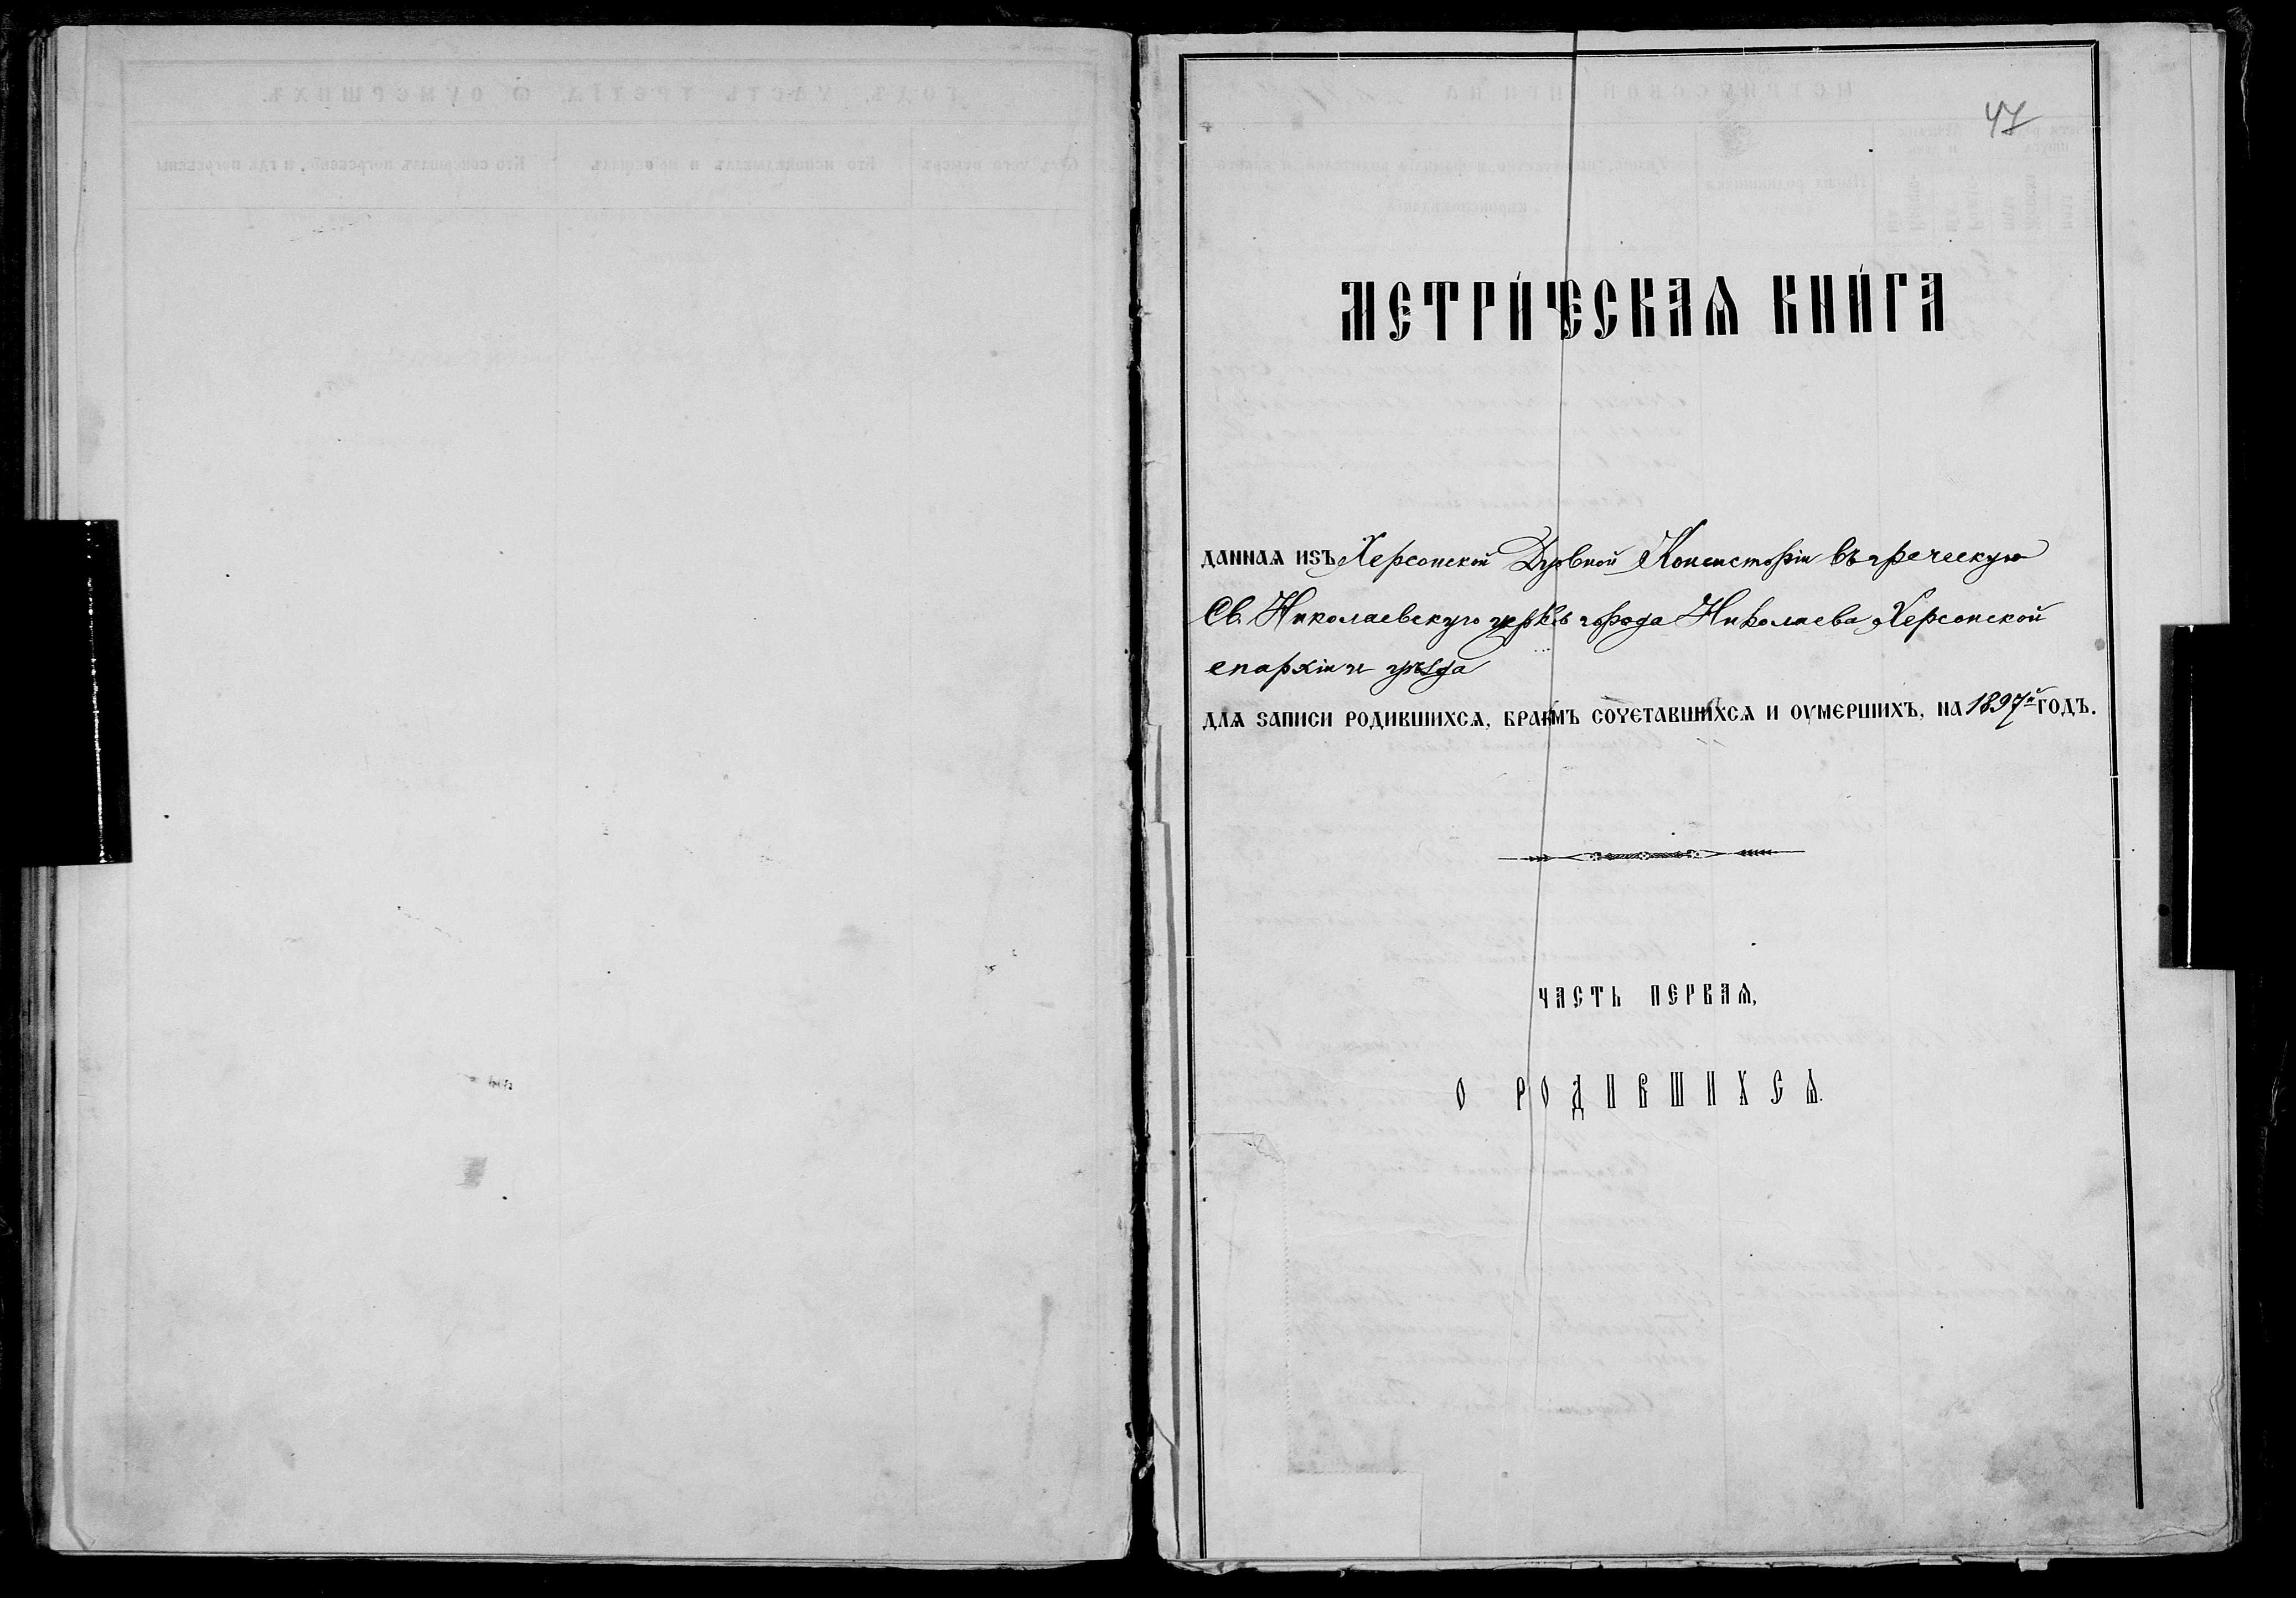 47
МЕТРИ́ЧЕСКАѦ КНИ́ГА
ДАННАѦ ИЗЪ Херсонской Духовной Консисторіи въ греческую
Св. Николаевскую церковь города Николаева Херсонской
епархіи и уѣзда
ДЛѦ ЗАПИСИ РОДИВШИХСѦ, БРАКОМЪ СОЧЕТАВШИХСѦ И ОУМЕРШИХЪ, НА 1897й ГОДЪ.
ЧАСТЬ ПЕРВАѦ,
О РОДИВШИХСѦ.